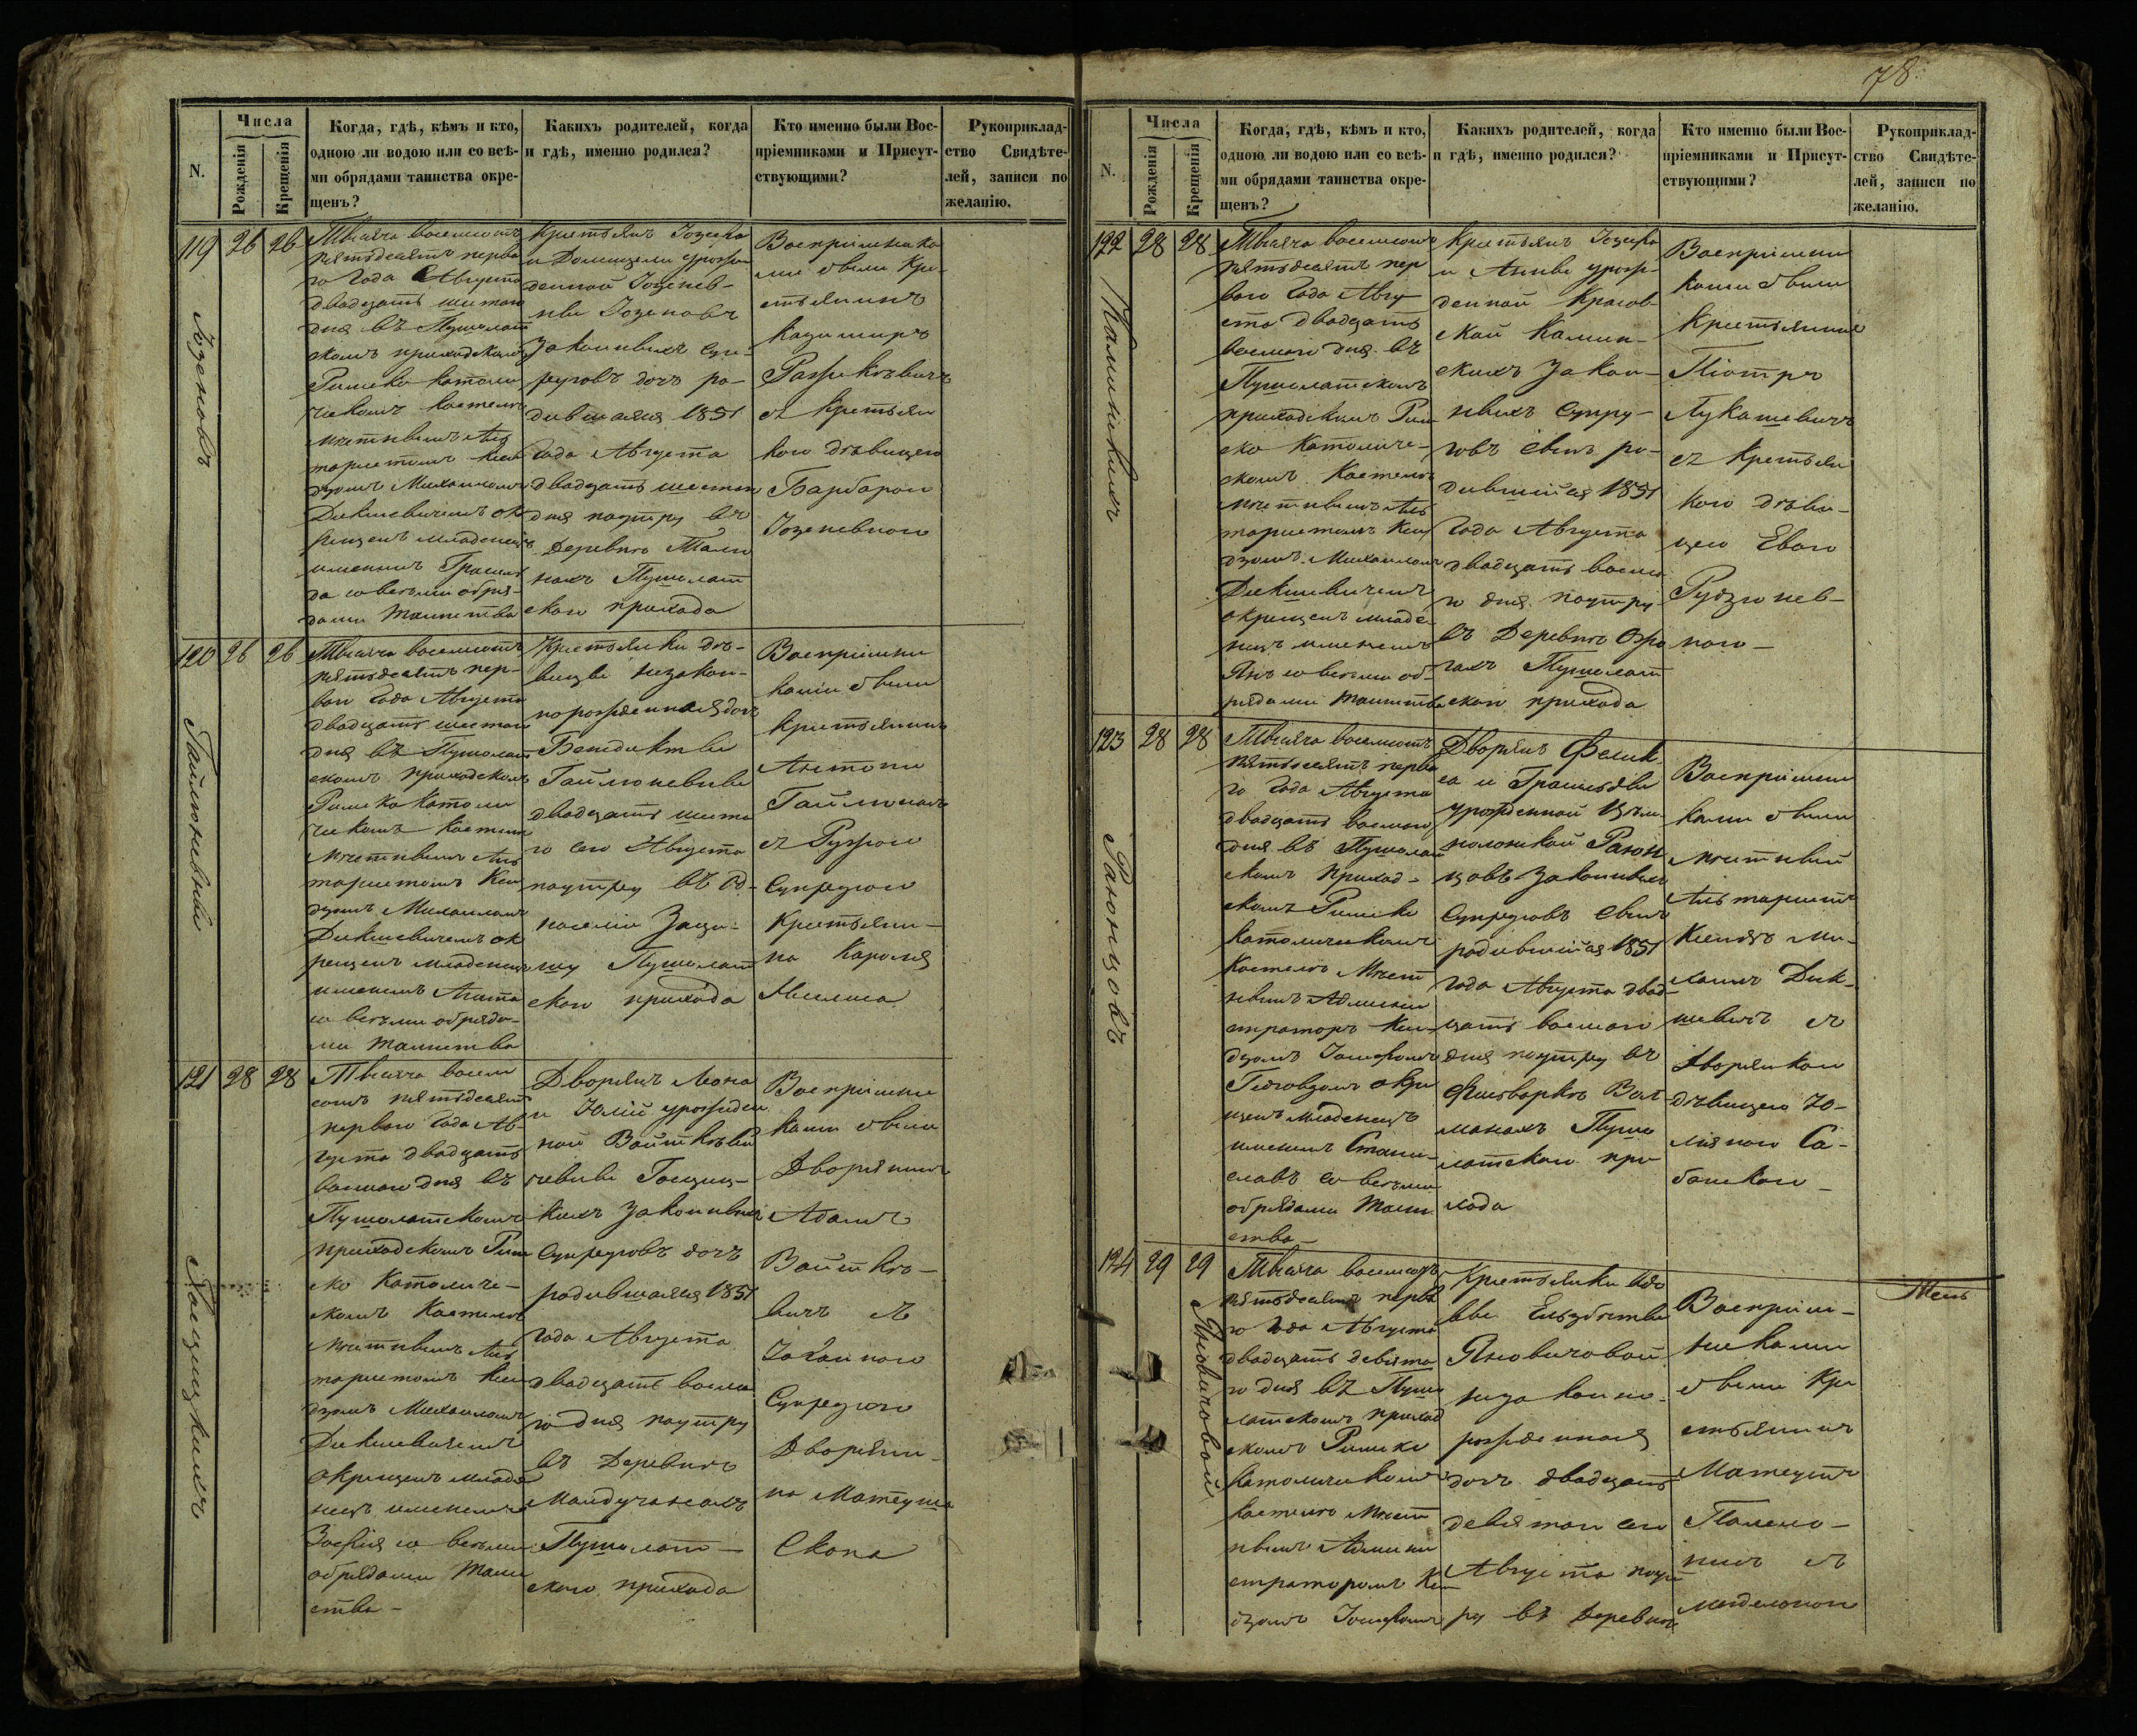 78.
N.
Числа
Рожденія
Крещенія
Когда, гдѣ, кѣмъ и кто,
одною ли водою или со всѣ-
ми обрядами таинства окре-
щенъ?
Какихъ родителей, когда
и гдѣ, именно родился?
Кто именно были Вос-
пріемниками и Присут-
ствующими?
Рукоприклад-
ство Свидѣте-
лей, записи по
желанію.
119
26
26
Юзеповъ
Тысяча восемьсотъ
пятьдесятъ перва
го Года Августа
двадцать шестого
дня въ Пушолат
скомъ приходскомъ
Римско Католи
ческомъ Костелѣ
мѣстнымъ Аль
таристомъ Ксен
дзомъ Михаиломъ
Дикшевичемъ ок
рещенъ младенецъ
именемъ
да со всѣми обря-
дами таинства
Крестьянъ Іозефа
и Домицели урожден
денной
Юзеповъ
Законныхъ Суп-
руговъ дочь ро-
дившаяся 1851
Года Августа
двадцать шестого
дня поутру въ
Деревнѣ
Пушолат
скаго прихода
Воспріемника
ми были Кре-
стьянинъ
Казимиръ
съ Крестьян
кою дѣвицею
Барборою
Юзепевною
120
26
26
Гайлюневны
Тысяча восемьсотъ
пятьдесятъ пер-
ваго Года Августа
двадцать шестого
дня въ Пушолат
скомъ приходскомъ
Римско Католи
ческомъ Костелѣ
мѣстнымъ Аль
таристомъ Ксен
дзомъ Михаиломъ
Дикшевичемъ ок
рещенъ младенецъ
именемъ Агата
со всѣми обряда-
ми таинства
Крестьянки дѣ-
вицы незакон-
норожденная дочь
Бенедикты
Гайлюневны
двадцать шеста
го сего Августа
поутру въ Од-
носеліи
Пушолат
скаго прихода
Воспріемни
ками были
Крестьянинъ
Антони
Гайлюнасъ
съ Рузею
Супругою
Крестьяни-
на Кароля
121
28
28
Тысяча восемь
сотъ пятьдесятъ
перваго Года Ав-
густа двадцать
восьмаго дня въ
Пушолатскомъ
приходскомъ Рим
ско Католиче-
скомъ Костелѣ
мѣстнымъ Аль
таристомъ Ксен
дзомъ Михаиломъ
Дикшевичемъ
окрещенъ младе
нецъ именемъ
Зофія со всѣми
обрядами таин
ства
Дворянъ Леона
и Юліи урожден
ной Войткѣви
чевны
кихъ Законныхъ
Супруговъ дочь
родившаяся 1851
Года Августа
двадцать восьма
го дня поутру
въ Деревнѣ
Пушолат
скаго прихода
Воспріемни
ками были
Дворянинъ
Адамъ
Войткѣ-
вичъ съ
Супругою
Дворяни-
на Матеуша
Скопа
N.
Числа
Рожденія
Крещенія
Когда, гдѣ, кѣмъ и кто,
одною ли водою или со всѣ-
ми обрядами таинства окре-
щенъ?
Какихъ родителей, когда
и гдѣ, именно родился?
Кто именно были Вос-
пріемниками и Присут-
ствующими?
Рукоприклад-
ство Свидѣте-
лей, записи по
желанію.
122
28
28
Каминскихъ
Тысяча восемьсотъ
пятьдесятъ пер
ваго Года Авгу
ста двадцать
восьмаго дня въ
Пушолатскомъ
приходскомъ Рим
ско Католиче-
скомъ Костелѣ
мѣстнымъ Аль
таристомъ Ксен
дзомъ Михаиломъ
Дикшевичемъ
окрещенъ младе
нецъ именемъ
Янъ со всѣми об-
рядами таинства
Крестьянъ Іозефа
и Анны урож-
денной
ской Камин-
скихъ Закон-
ныхъ Супру-
говъ сынъ ро-
дившійся 1851
Года Августа
двадцать восьма
го дня поутру
въ Деревнѣ
Пушолат
скаго прихода
Воспріемни
ками были
Крестьянинъ
Піотръ
Лукашевичъ
съ Крестьян
кою дѣви-
цею Евою
123
28
28
Раюнцовъ
Тысяча восемьсотъ
пятьдесятъ перва
го Года Августа
двадцать восьмаго
дня въ Пушолат
скомъ приход-
скомъ Римско
Католическомъ
Костелѣ мѣст
нымъ Админи
страторъ Ксен
дзомъ Іосифомъ
окре
щенъ младенецъ
именемъ Стани-
славъ со всѣми
обрядами таин
ства
Дворянъ Фелик
са и
урожденной
Раюн
цовъ Законныхъ
Супруговъ сынъ
родившійся 1851
Года Августа двад-
цать восьмаго
дня поутру въ
Фольваркѣ
Пушо
латскаго при
хода
Воспріемни
ками были
мѣстный
Альтаристъ
Ксендзъ Ми-
хаилъ Дик-
шевичъ съ
Дворянкою
дѣвицею Ю-
ліянною
124
29
29
Яновичовой
Тысяча восемьсотъ
пятьдесятъ перва
го Года Августа
двадцать девята
го дня въ Пушо
латскомъ приход
скомъ Римско
Католическомъ
Костелѣ мѣст
нымъ Админи
страторомъ Ксен
дзомъ Іосифомъ
Крестьянки вдо
вы Ельзбеты
Яновичовой
незаконно-
рожденная
дочь двадцать
девятаго сего
Августа поут
ру въ Деревнѣ
Воспріем-
никами
были Кре
стьянинъ
Матеушъ
съ